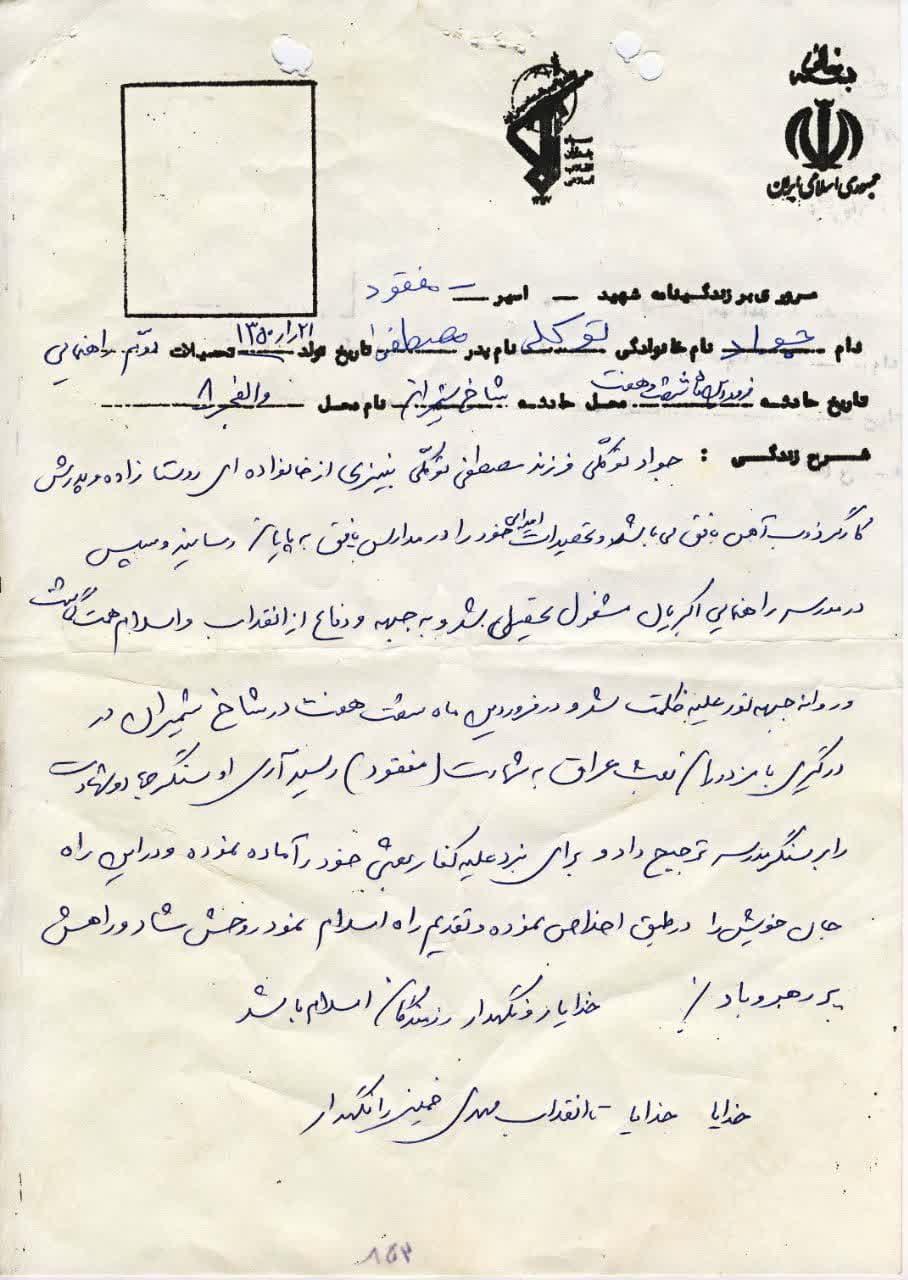 بسمه تعالی
جمهوری اسلامی ایران
سپاه پاسداران انقلاب اسلامی
مروری بر زندگینامه شهید - اسیر - مفقود
نام جواد نام خانوادگی توکلی نام پدر مصطفی تاریخ تولد ۱۳۵۰/۱/۲۱ تحصیلات دوم راهنمایی
تاریخ حادثه فروردین ماه شصت و هفت محل حادثه شاخ شمیران نام محل والفجر ۸
شرح زندگی : جواد توکلی فرزند مصطفی توکلی نیز از خانواده ای روستا زاده و پدرش
کارگر ذوب آهن بافق می باشد و تحصیلات ابتدائی خود را در مدارس بافق به پایان رسانید و سپس
در مدرسه راهنمایی مشغول تحصیل شد و به جبهه و دفاع از انقلاب و اسلام همت گماشت
و روانه جبهه نور علیه ظلمت شد و در فروردین ماه شصت هفت در شاخ شمیران در
درگیری با مزدوران بعث عراق به شهادت (مفقود) رسید آری او سنگر جهاد و شهادت
را بر سنگر مدرسه ترجیح داد و برای نبرد علیه کفار بعثی خود را آماده نموده و در این راه
جان خویش را در طبق اخلاص نموده و تقدیم راه اسلام نمود روحش شاد و راهش
پر رهرو باد خدا یار و نگهدار رزمندگان اسلام باشد
خدایا خدایا تا انقلاب مهدی خمینی را نگهدار
۱۵۴